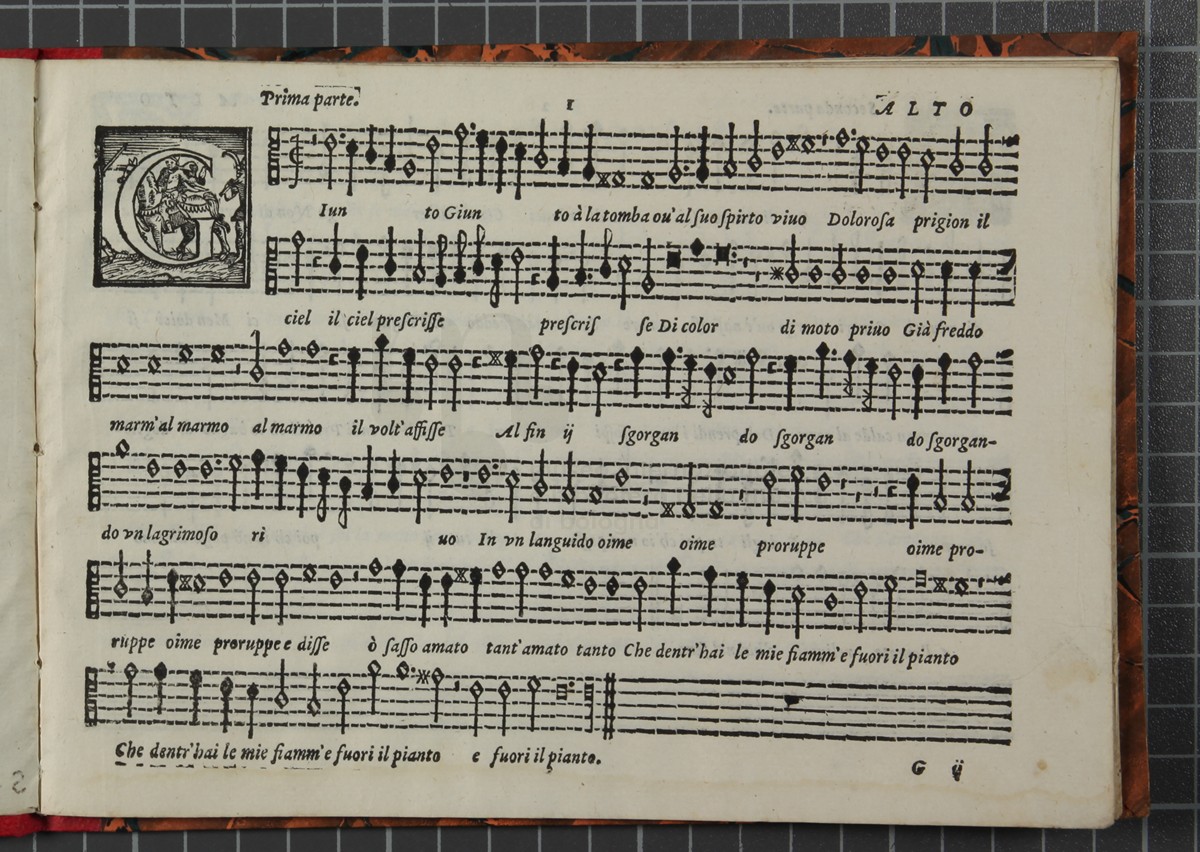 Prima parte.
1
ALTO
GIun to Giun to à la tomba ou'al suo spirto viuo Dolorosa prigion il
ciel il ciel prescrisse prescris se Di color di moto priuo Già freddo
marm'al marmo al marmo il volt'affisse Al fin ij sgorgan do sgorgan do sgorgan-
do vn lagrimoso ri uo In vn languido oime oime proruppe oime pro-
ruppe oime proruppe e disse ò sasso amato tant'amato tanto Che dentr'hai le mie fiamm'e fuori il pianto
Che dentr'hai le mie fiamm'e fuori il pianto e fuori il pianto.
G ij